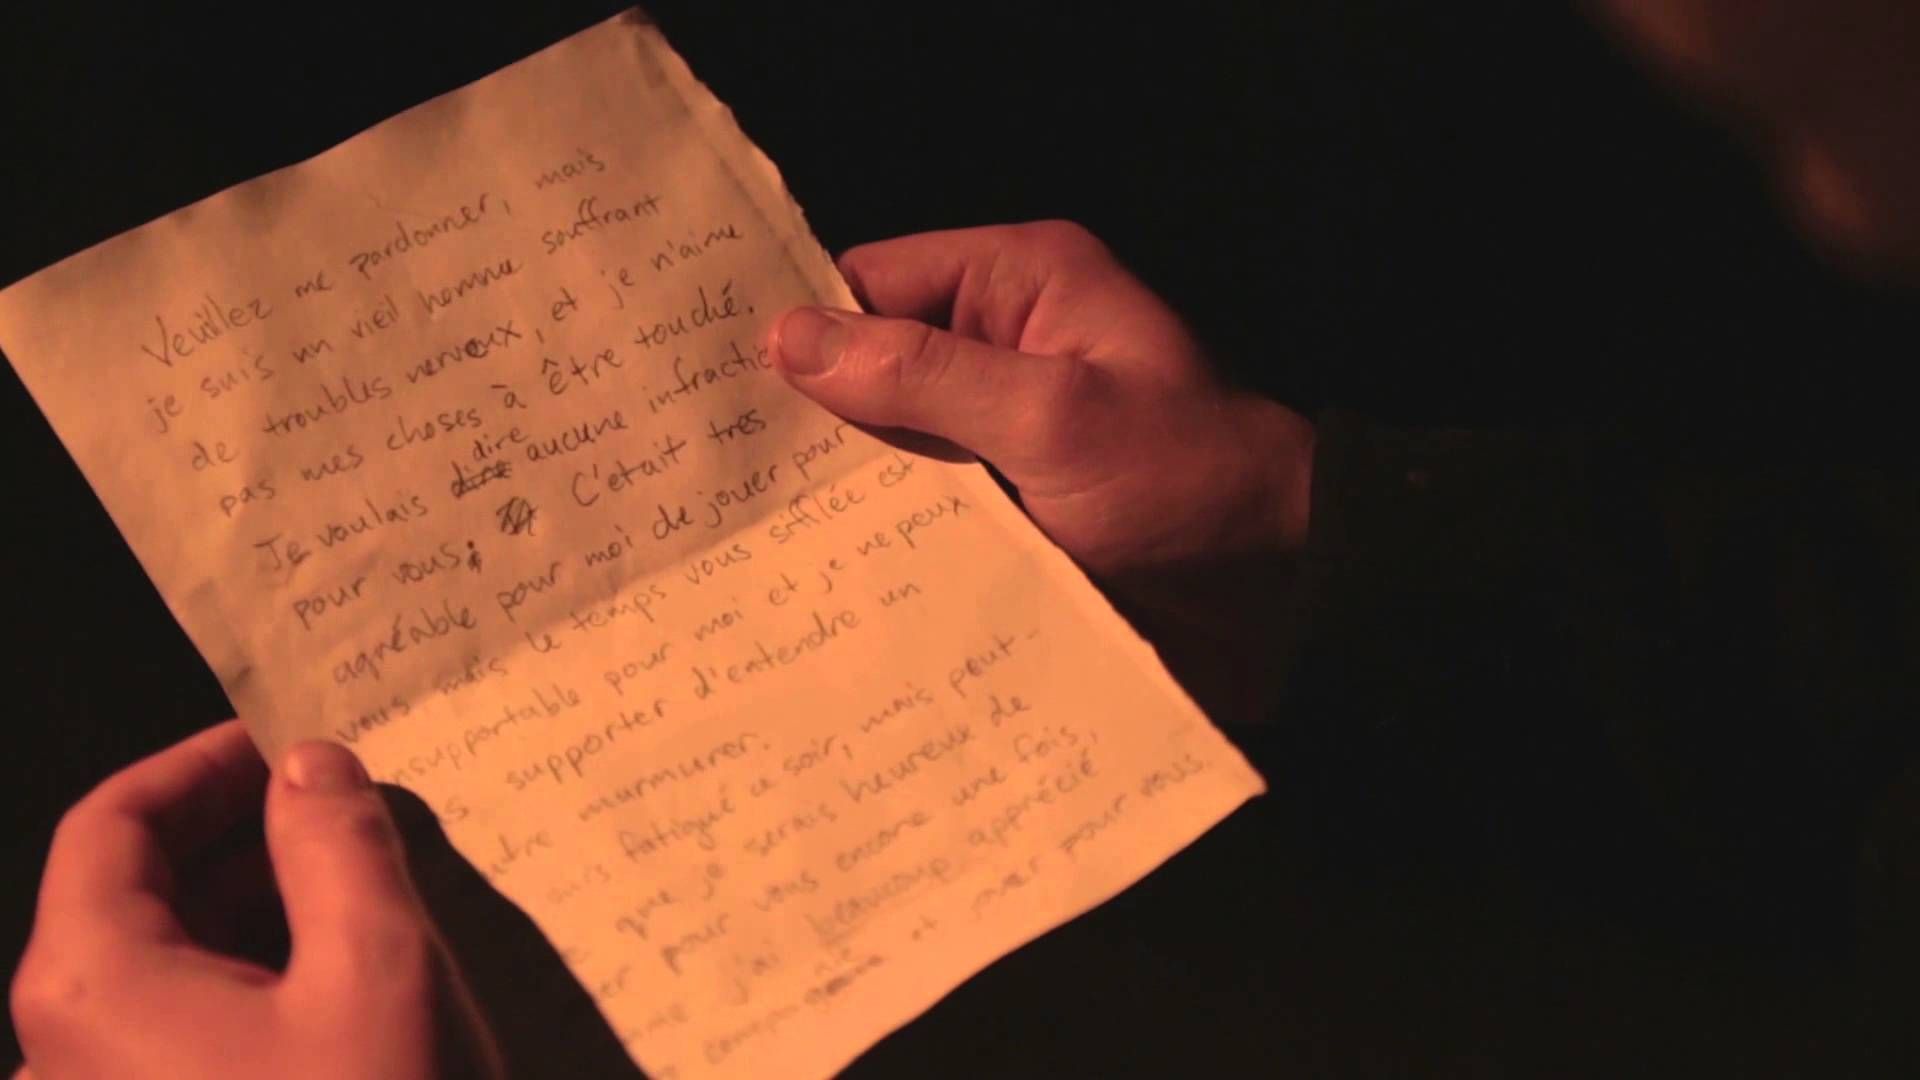 Veuillez me pardonner, mais
je suis un vieil homme souffrant
de troubles nerveux, et je n'aime
pas mes choses à être touché.
Je voulais dire aucune infractio
pour vous; C'etait très
agréable pour moi de jouer pour
vous mais le temps vous sifflée est
nsupportable pour moi et je ne peux
s supporter d'entendre un
utre murmurer.
suis fatigué ce soir, mais peut-
que je serais heureux de
er pour vous encore une fois,
me j'ai beaucoup apprécié
compagnie et pour vous.